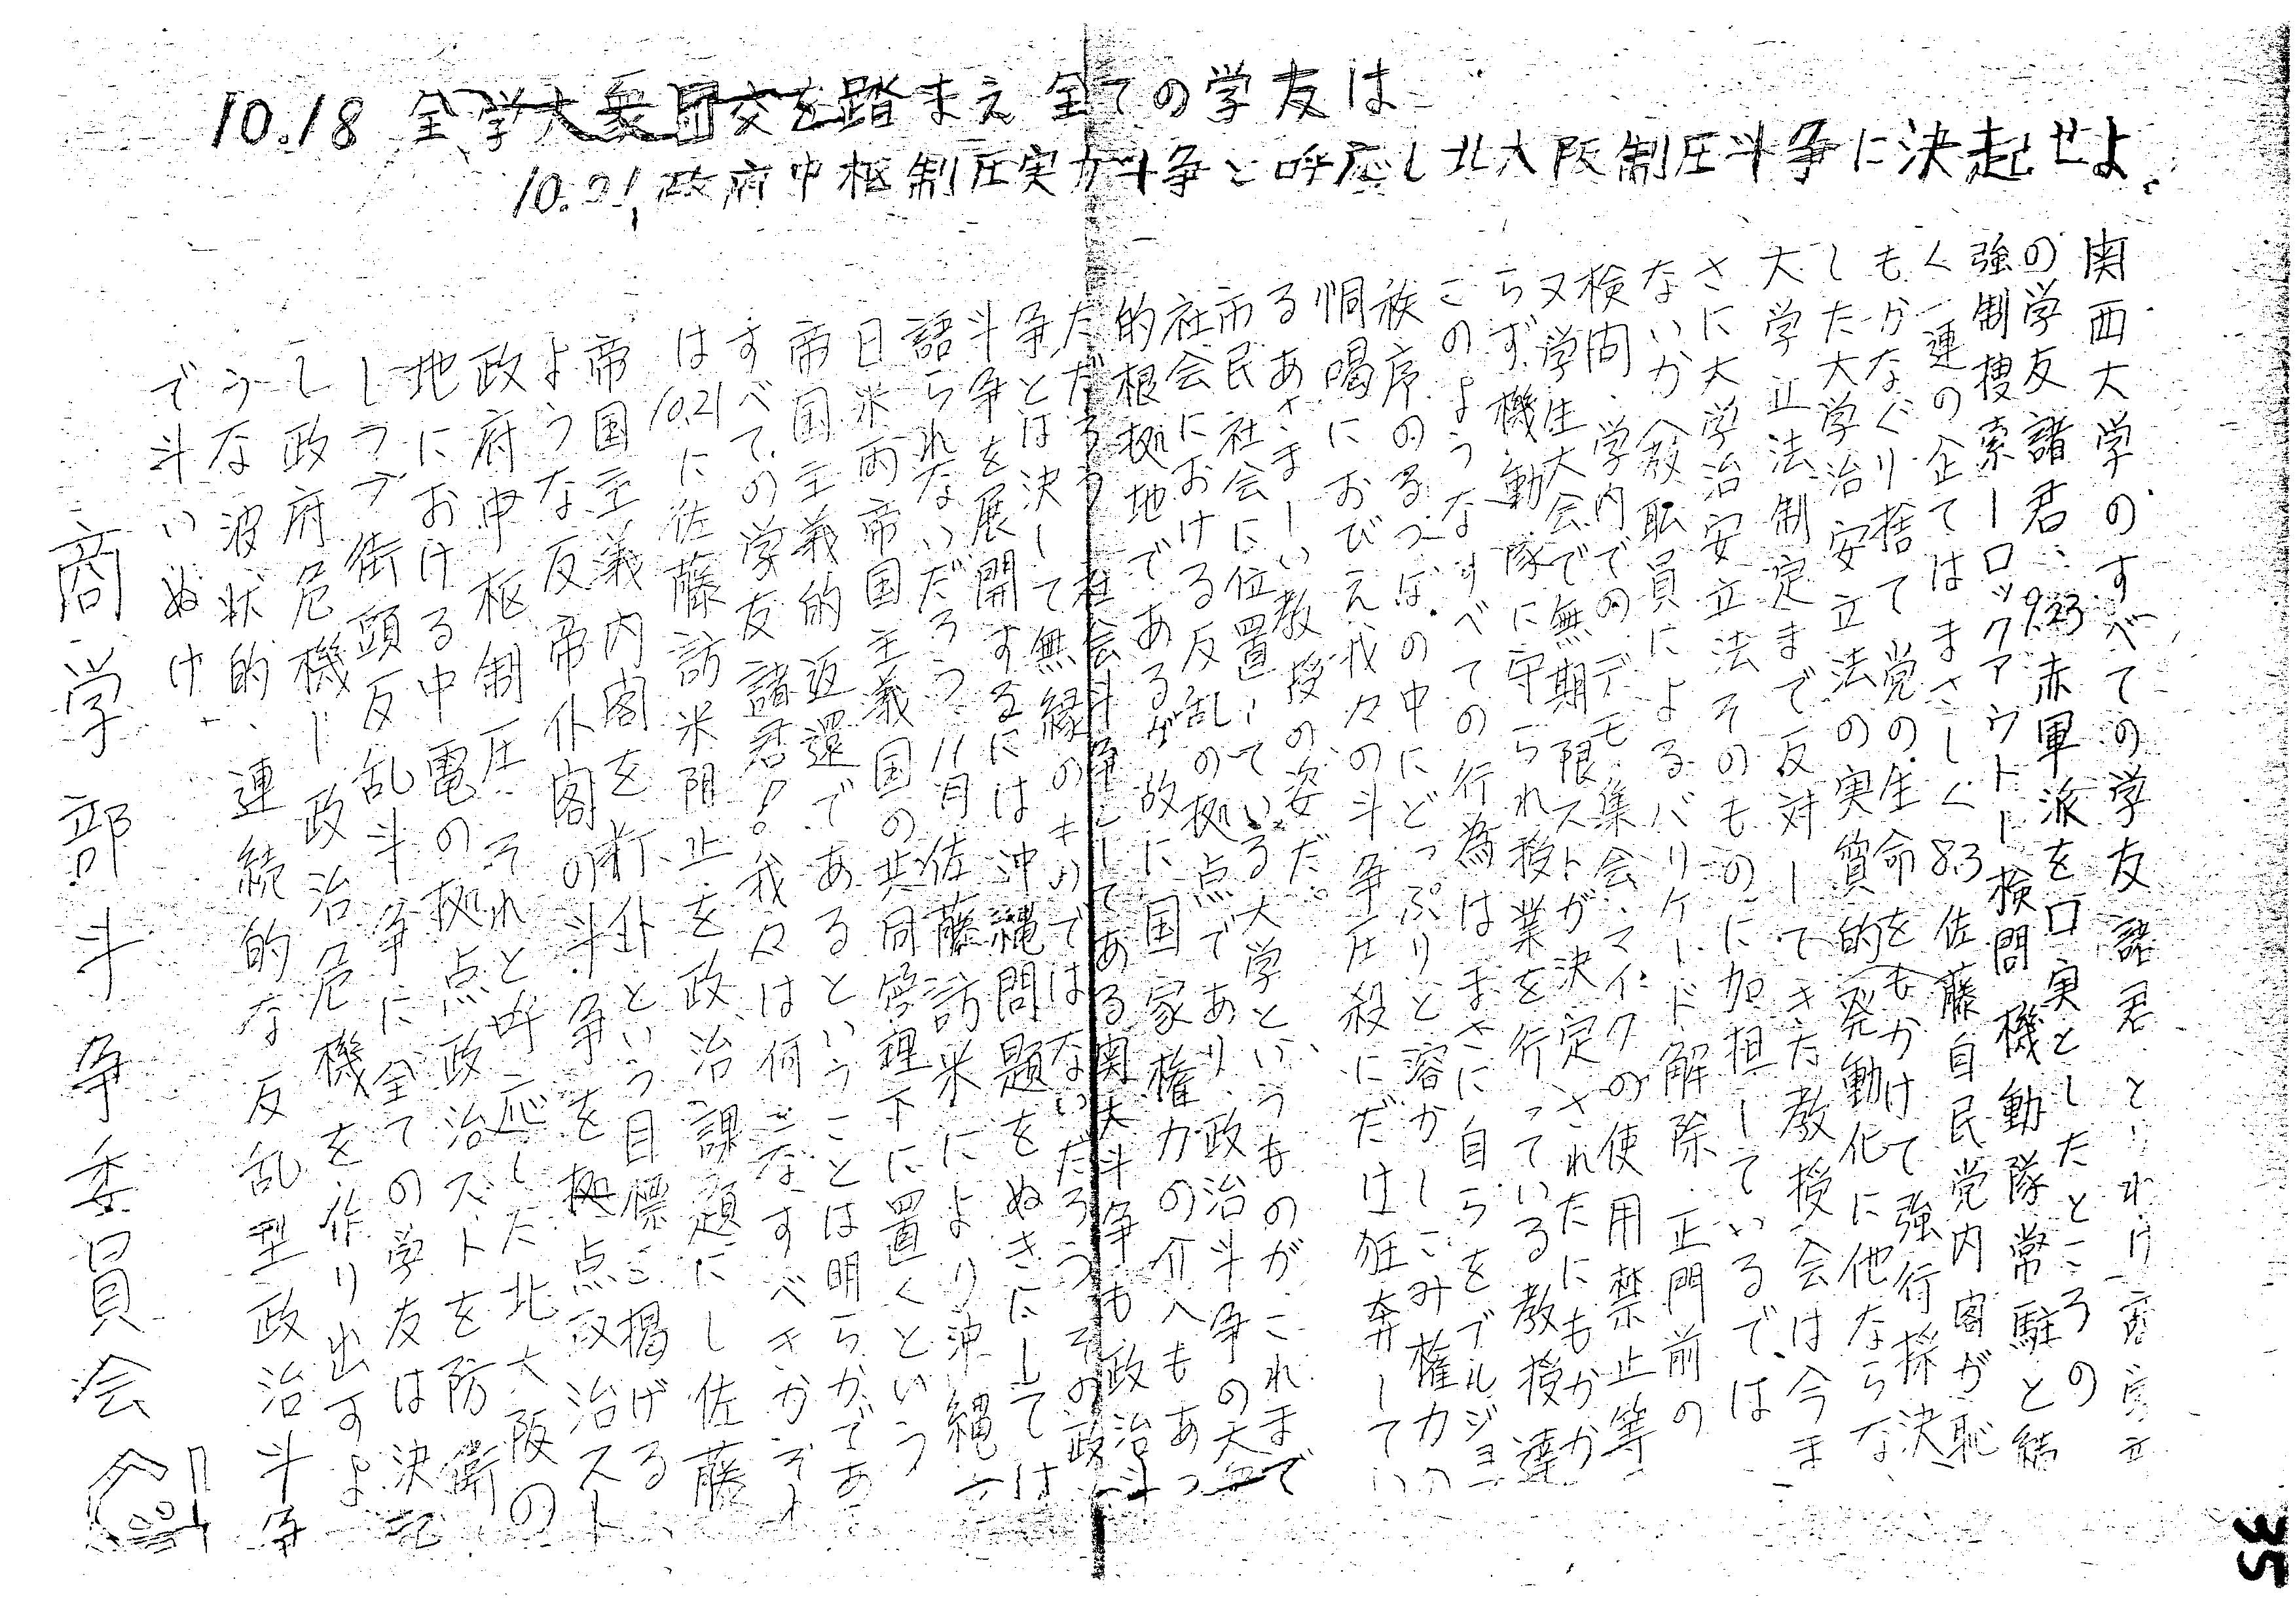 10.18 全学大衆団交を踏まえ全ての学友は
10.21政府中枢制圧実力斗争と呼応し北大阪制圧斗争に決起せよ。
関西大学のすべての学友諸君、とりわけ商学部
の学友諸君、9.23赤軍派を口実としたところの
強制捜索ーロックアウトー検問、機動隊常駐と続
く一連の企てはまさしく8.3佐藤自民党内閣が恥
もかなぐり捨て党の生命をもかけて強行採決
した大学治安立法の実質的発動化に他ならな
大学立法制定まで反対してきた教授会は今ま
さに大学治安立法そのものに加担しているでは
ないか 教職員によるバリケード解除、正門前の
検問、学内でのデモ、集会、マイクの使用禁止等
又学生大会で無期限ストが決定されたにもかかわ
らず、機動隊に守られ授業を行っている教授達
このようなすべての行為はまさに自らをブルジョ
秩序のるつぼの中にどっぷりと溶かしこみ権力の
恫喝におびえ我々の斗争圧殺にだけ狂奔してい
るあさましい教授の姿だ。
市民社会に位置している大学というものがこれまで
社会における反乱の拠点であり、政治斗争の大衆
的根拠地であるが故に国家権力の介入もあっ
ただろう 社会斗争としてある関大斗争も政治斗
争とは決して無縁のものではないだろう その政治
斗争を展開するには沖縄問題をぬきにしては
語られないだろう 11月佐藤訪米により沖縄を
日米両帝国主義国の共同管理下に置くという
帝国主義的返還であるということは明らかであ
すべての学友諸君！。我々は何をなすべきか それ
は10.21に佐藤訪米阻止を政治課題にし佐藤
帝国主義内閣を打仆という目標を掲げる
ような反帝仆閣の斗争を拠点政治スト
政府中枢制圧 それと呼応した北大阪の
地における中電の拠点政治ストを防衛
しつつ街頭反乱斗争に全ての学友は決起
し政府危機ー政治危機を作り出すよ
うな波状的、連続的な反乱型政治斗争
で斗いぬけ
商学部斗争委員会
35